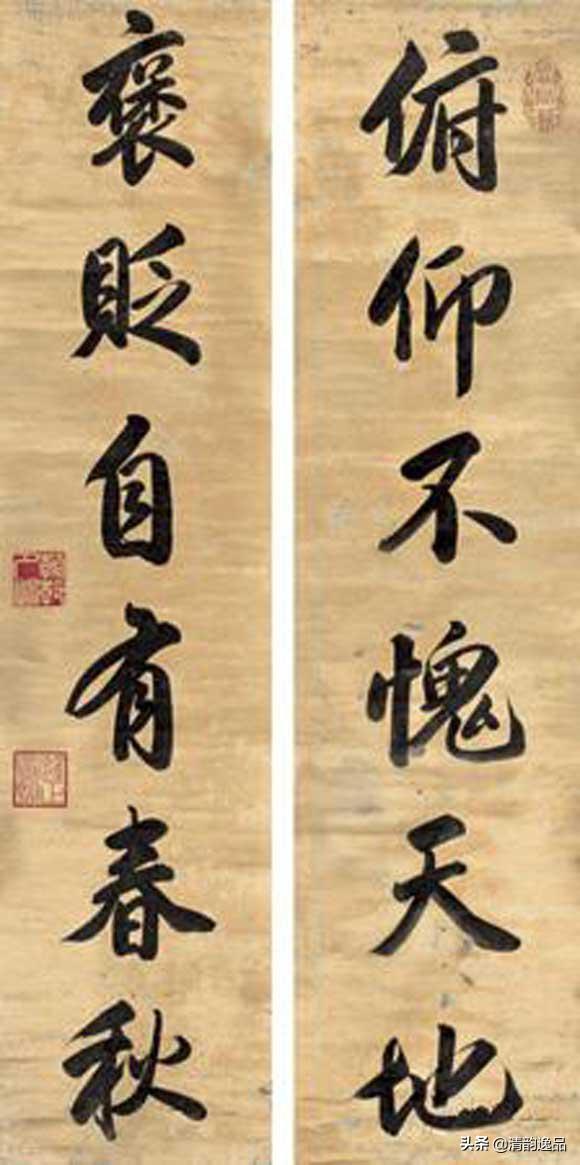 俯仰不愧天地
褒貶自有春秋
头条 @清韵逸品